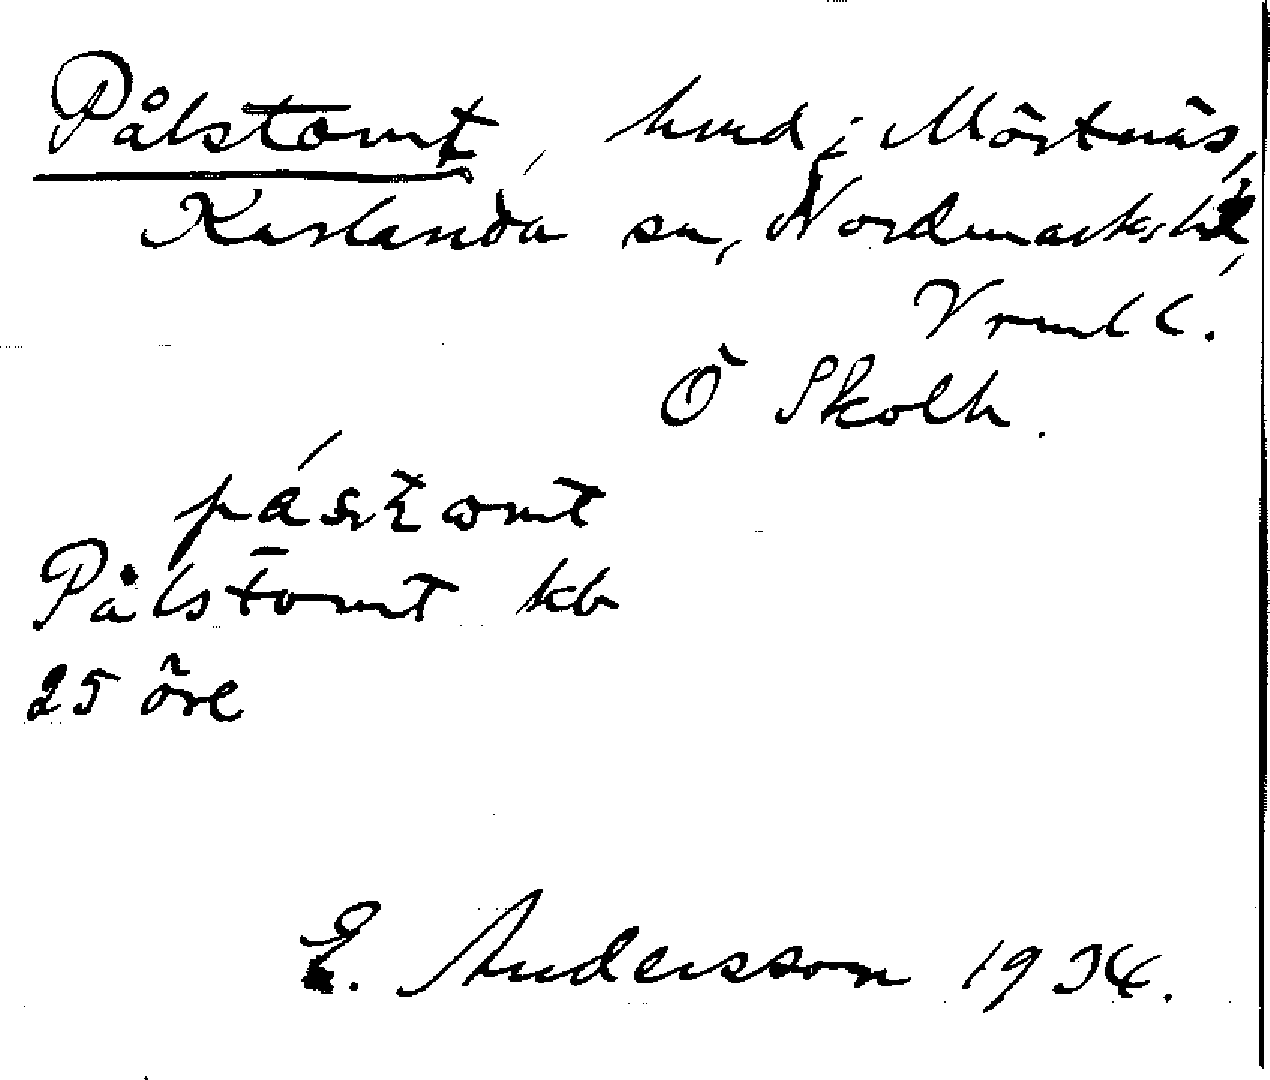 Pålstomt, hmd i Mörtnäs,
Karlanda sn, Nordmarks hd,
Vrml l.
Ö Skolh.
påsʈomt
Pålstomt kb
25 öre
E. Andersson 1934.